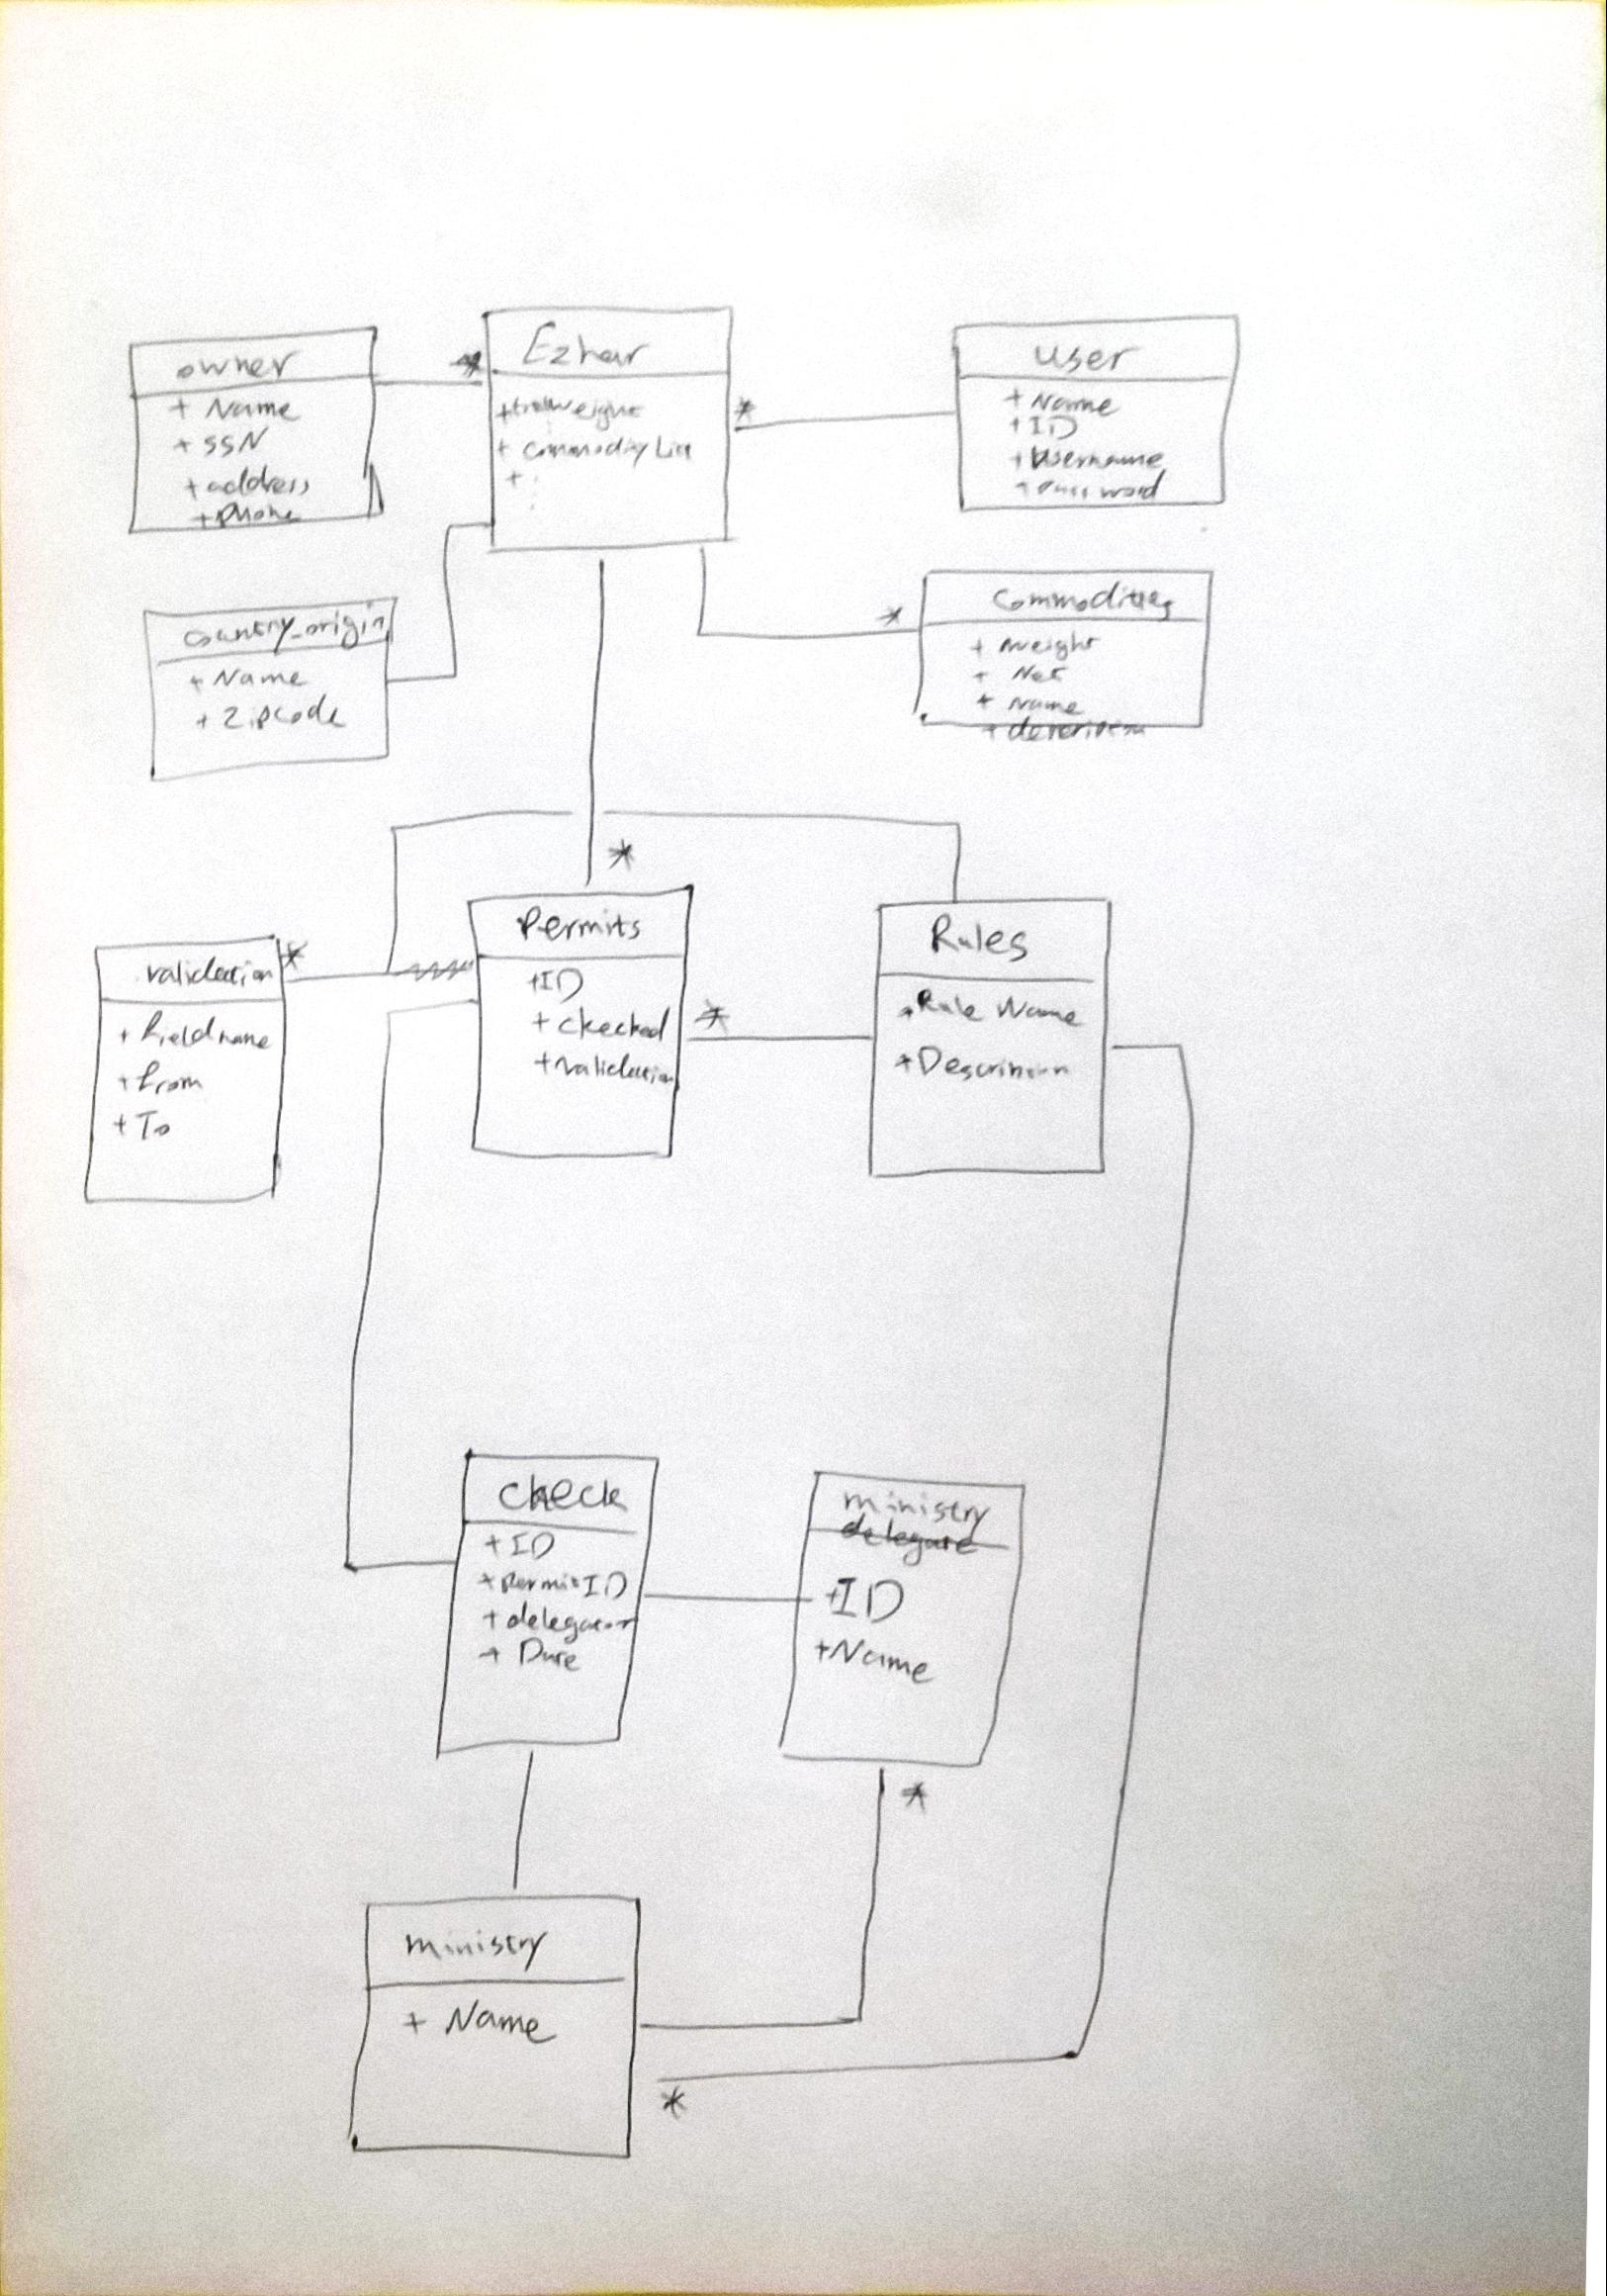 owner
+ Name
+ SSN
+ address
+ Phone
Ezhar
+ commodity List
+
*
*
user
+ Name
+ ID
+ Username
+ password
country_origin
+ Name
+ Zipcode
Commodities
+ weight
+ Net
+ Name
+ description
*
*
validation
+ fieldname
+ from
+ To
*
Permits
+ID
+ checked
+validation
*
Rules
+Rule Name
+Description
check
+ID
+permitID
+ Date
ministry
delegate
+ID
+Name
*
ministry
+ Name
*